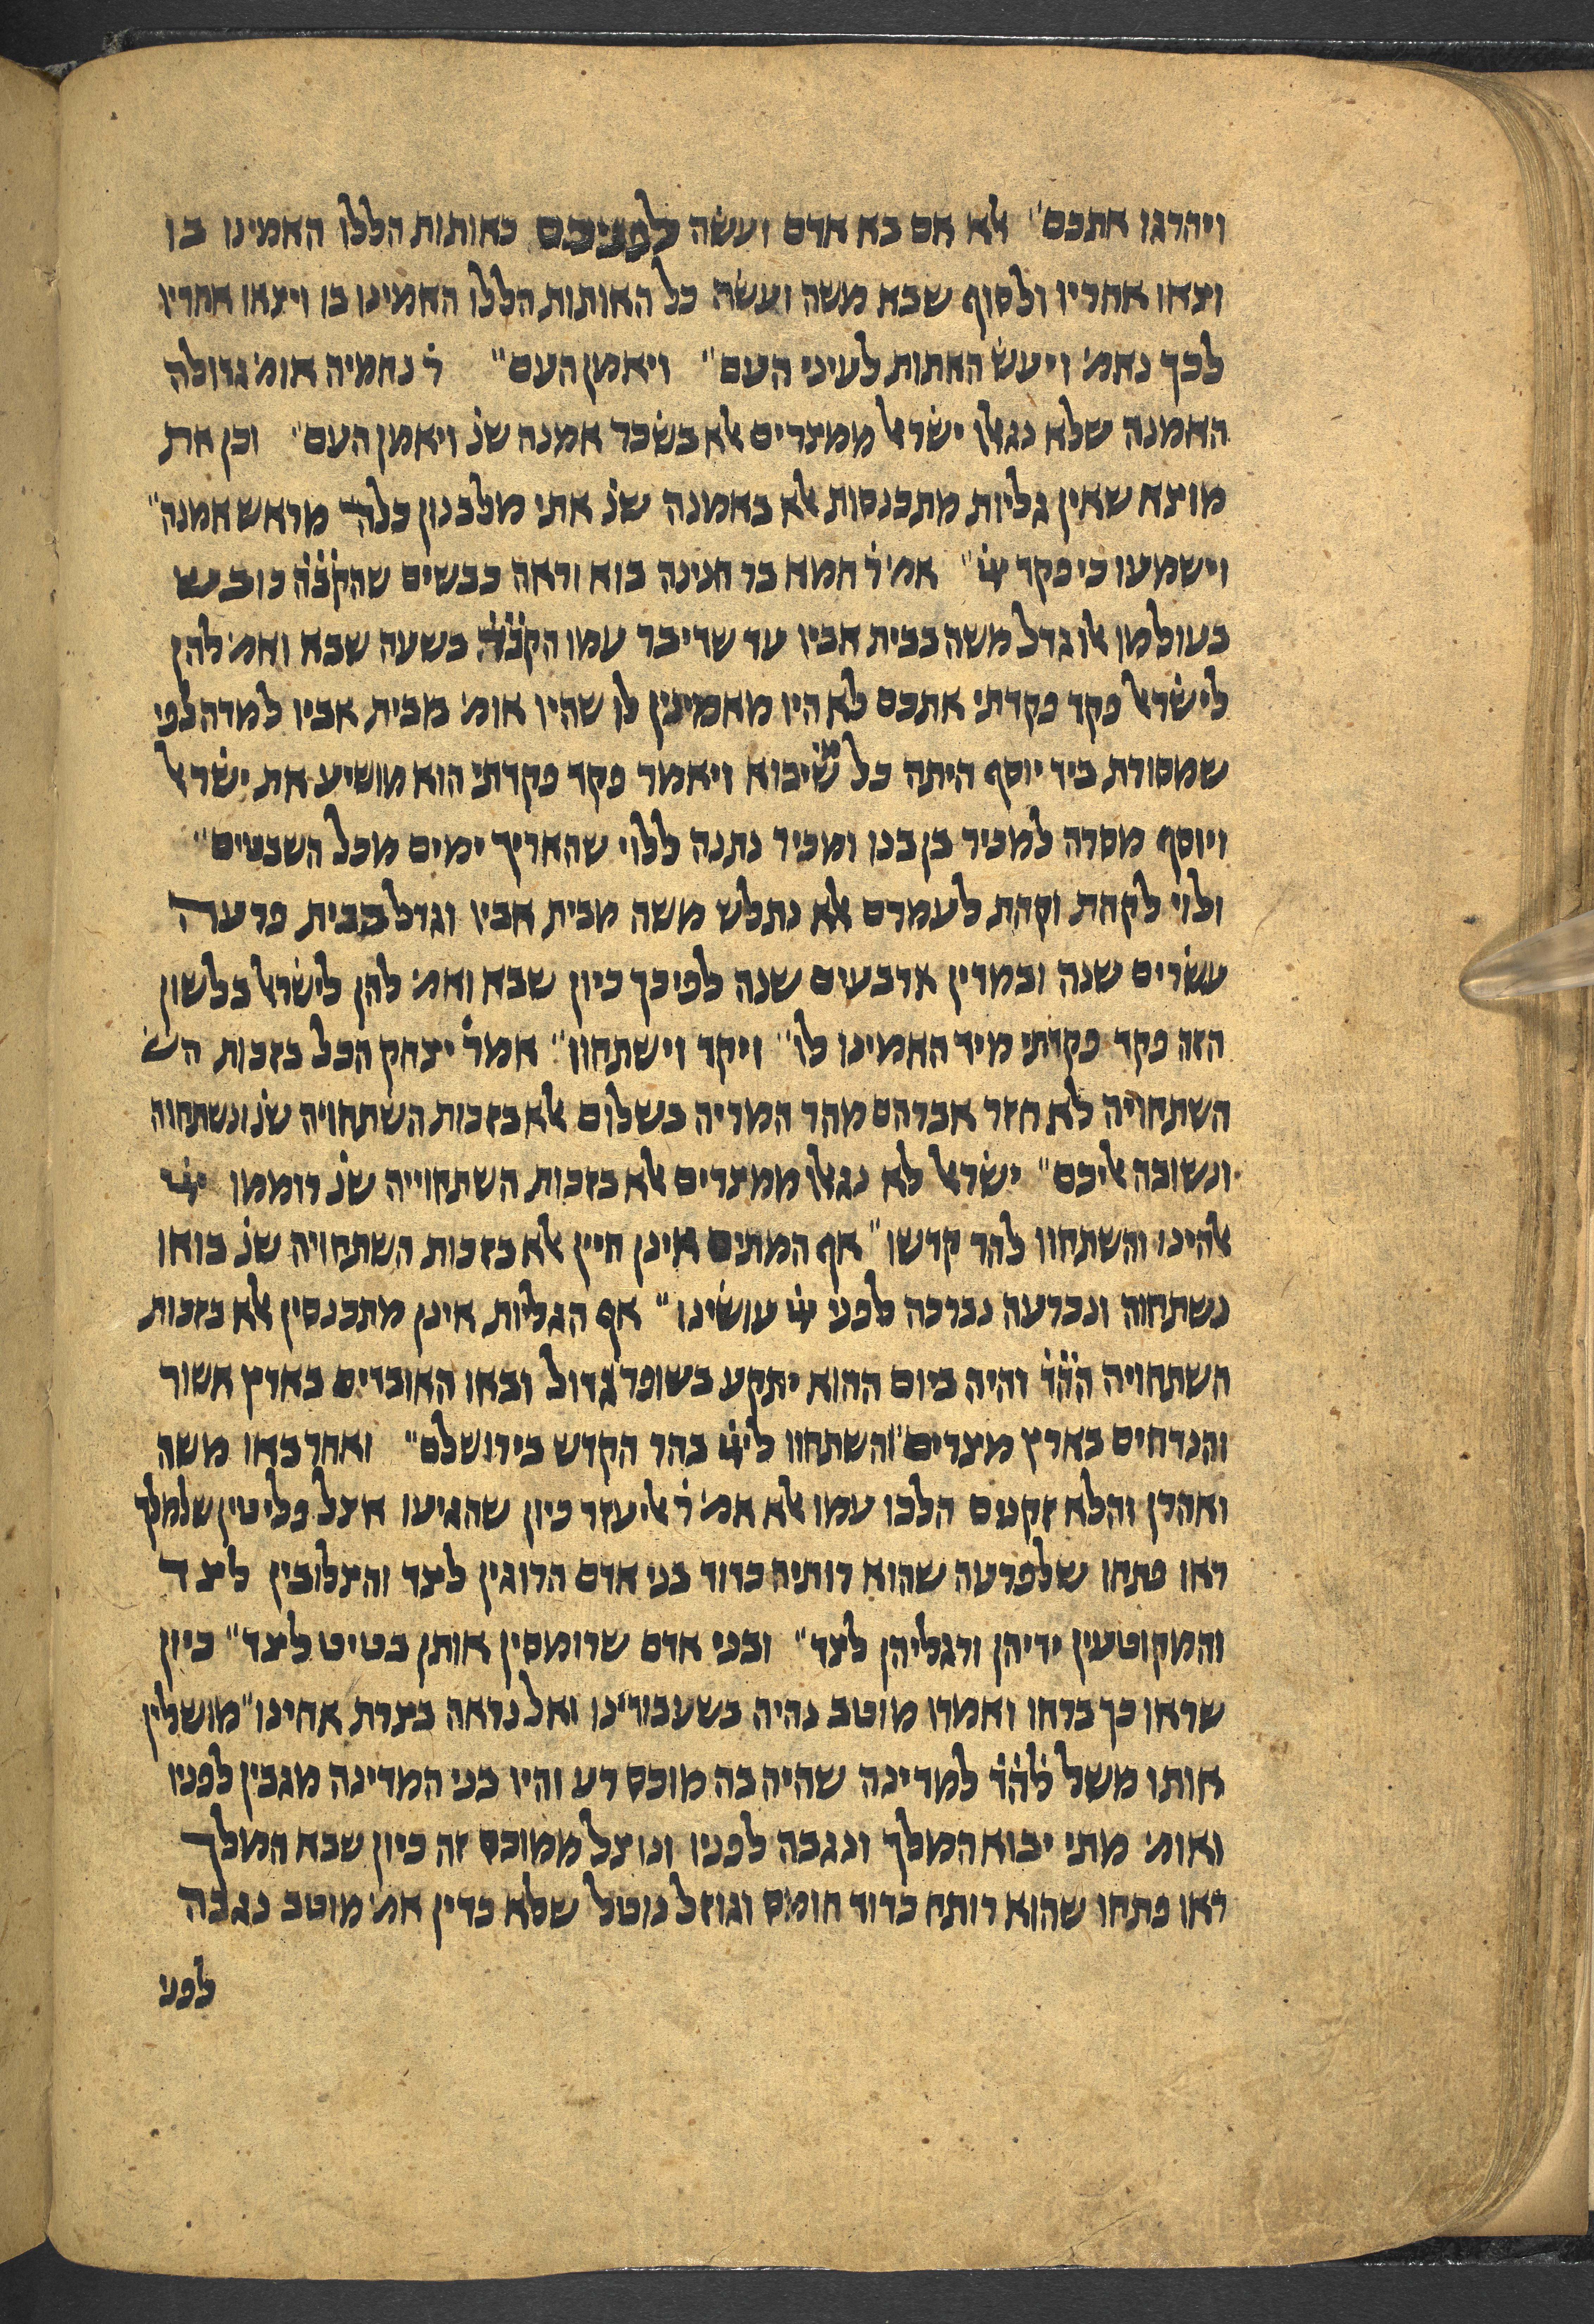 ויהרגו אתכם״ אלא אם בא אדם ועשה לפניכם כאותות הללו האמינו בו
וצאו אחריו ולסוף שבא משה ועשה כל האותות הללו האמינו בו ויצאו אחריו
לכך נאמ׳ ויעש האתות לעיני העם״ ויאמן העם״ ר׳ נחמיה אומ׳ גדולה
האמנה שלא נגאלו ישראל ממצרים אלא בשכר אמנה שנ׳ ויאמן העם״ וכן את
מוצא שאין גליות מתכנסות אלא באמנה שנ׳ אתי מלבנון כלה מראש אמנה״
וישמעו כי פקד יי׳״ אמ׳ ר׳ חמא בר חנינה בוא וראה כבשים שהק׳ב׳ה׳ כובש
בעולמו אלו גדל משה בבית אביו עד שדיבר עמו הק׳ב׳ה׳ בשעה שבא ואמ׳ להן
לישראל פקד פקדתי אתכם לא היו מאמינין לו שהיו אומ׳ מבית אביו למדה לפי
שמסורת ביד יוסף היתה כל מי שיבוא ויאמר פקד פקדתי הוא מושיע את ישראל
ויוסף מסרה למכיר בן בנו ומכיר נתנה ללוי שהאריך ימים מכל השבטים״
ולוי לקהת וקהת לעמרם אלא נתלש משה מבית אביו וגדל בבית פרעה
עשרים שנה ובמדין ארבעים שנה לפיכך כיון שבא ואמ׳ להן לישראל בלשון
הזה פקד פקדתי מיד האמינו לו״ ויקד וישתחוו״ אמר ר׳ יצחק הכל בזכות הש׳
השתחויה לא חזר אברהם מהר המריה בשלום אלא בזכות השתחויה שנ׳ ונשתחוה
ונשובה אליכם״ ישראל לא נגאלו ממצרים אלא בזכות השתחוייה שנ׳ רוממו יי׳
אלהינו והשתחוו להר קדשו״ אף המתים אינן חיין אלא בזכות השתחויה שנ׳ בואו
נשתחוה ונכרעה נברכה לפני יי׳ עושינו״ אף הגליות אינן מתכנסין אלא בזכות
השתחויה הה׳ד׳ והיה ביום ההוא יתקע בשופר גדול ובאו האובדים בארץ אשור
והנדחים בארץ מצרים והשתחוו ליי׳ בהר הקדש בירושלם״ ואחר באו משה
ואהרן והלא זקנים הלכו עמו אלא אמ׳ ר׳ אליעזר כיון שהגיעו אצל פליטין שלמלך
ראו פתחו שלפרעה שהוא רותיח כדוד בני אדם הרוגין לצד והצלובין לצד
והמקוטעין ידיהן ורגליהן לצד״ ובני אדם שרומסין אותן בטיט לצד״ כיון
שראו כך ברחו ואמרו מוטב נהיה בשעבודינו ואל נראה בצרת אחינו״ מושלין
אותו משל לה׳ד׳ למדינה שהיה בה מוכס רע והיו בני המדינה מגבין לפניו
ואומ׳ מתי יבוא המלך ונגבה לפניו ונוצל ממוכס זה כיון שבא המלך
ראו פתחו שהוא רותח כדוד חומס וגוזל נוטל שלא כדין אמ׳ מוטב נגבה
לפני